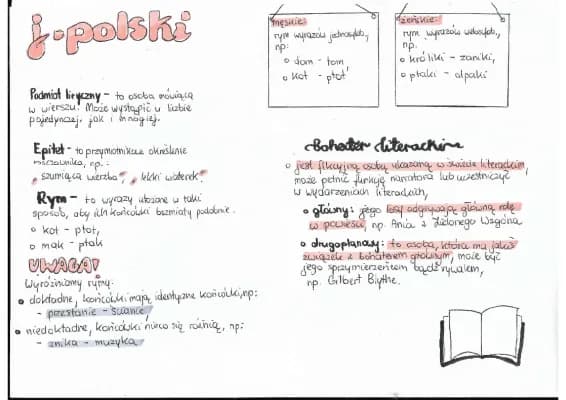 j. polski
Podmiot liryczny - to osoba mówiąca
w wierszu. Może wystąpić w liczbie
pojedynczej, jak i mnogiej.
Epitet - to przymiotnikowe określenie
rzeczownika, np.:
szumiąca wierzba, lekki wiaterek
Rym - to wyrazy ułożone w taki
sposób, aby ich końcówki brzmiały podobnie.
kot - płot,
mak - ptak
UWAGA!
Wyróżniamy rymy:
dokładne, końcówki mają identyczne końcówki, np:
- przestanie - śianie,
niedokładne, końcówki nieco się różnią, np:
- znika - muzyka
męskie:
rym wyrazów jednosylab.,
np:
dom - tom
kot - płot
żeńskie:
rym wyrazów wielosylab.,
np.
króliki - zaniki,
ptaki - alpaki
Bohater literacki
jest fikcyjną osobą ukazaną w świecie literackim,
może pełnić funkcję narratora lub uczestniczyć
w wydarzeniach literackich,
główny: jego losy odgrywają główną rolę
w powieści, np. Ania z Zielonego Wzgórza
drugoplanowy: to osoba, która ma jakiś
związek z bohaterem głównym, może być
jego sprzymierzeńcem bądź rywalem,
np. Gilbert Blythe.